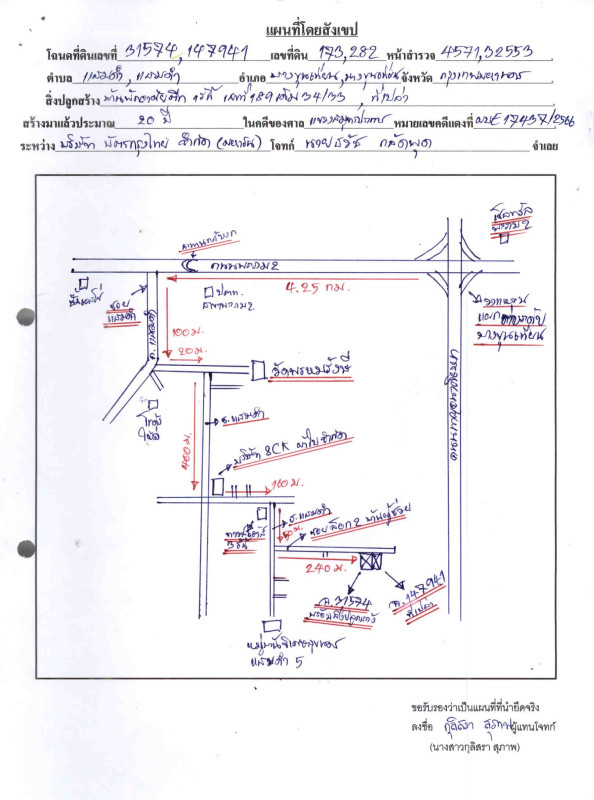 แผนที่โดยสังเขป
โฉนดที่ดินเลขที่ 31574, 147941 เลขที่ดิน 173, 282 หน้าสำรวจ 4571, 32553
ตำบล แสมดำ, แสมดำ อำเภอ บางขุนเทียน, บางขุนเทียน จังหวัด กรุงเทพมหานคร
สิ่งปลูกสร้าง บ้านพักอาศัยตึก เลขที่ 189 34/33, ที่เปล่า
สร้างมาแล้วประมาณ 20 ปี ในคดีของศาล แพ่งสมุทรปราการ หมายเลขคดีแดงที่ ผบE17437/2566
ระหว่าง บริษัท บัตรกรุงไทย จำกัด (มหาชน) โจทก์ นาย จำเลย
เซ็นทรัล
พระราม 2
สะพานกลับรถ
ถนนพระราม 2
4.25 กม.
ซอย
แสมดำ
ปตท.
พระราม 2
ทางต่างระดับ
บางขุนเทียน
100 ม.
20 ม.
วัดพรหมรังษี
ถนนบางขุนเทียน
โลตัส
ซ.แสมดำ
400 ม.
บริษัท SCK จำกัด
160 ม.
ซ.แสมดำ
50 ม.
ซอยล็อก 2 บ้านผู้ช่วย
240 ม.
ฉ.31574
พร้อมสิ่งปลูกสร้าง
ฉ.147941
ที่เปล่า
หมู่บ้าน
แสมดำ 5
ขอรับรองว่าเป็นแผนที่ที่นำยึดจริง
ลงชื่อ กุลิสรา สุภาพ ผู้แทนโจทก์
(นางสาวกุลิสรา สุภาพ)